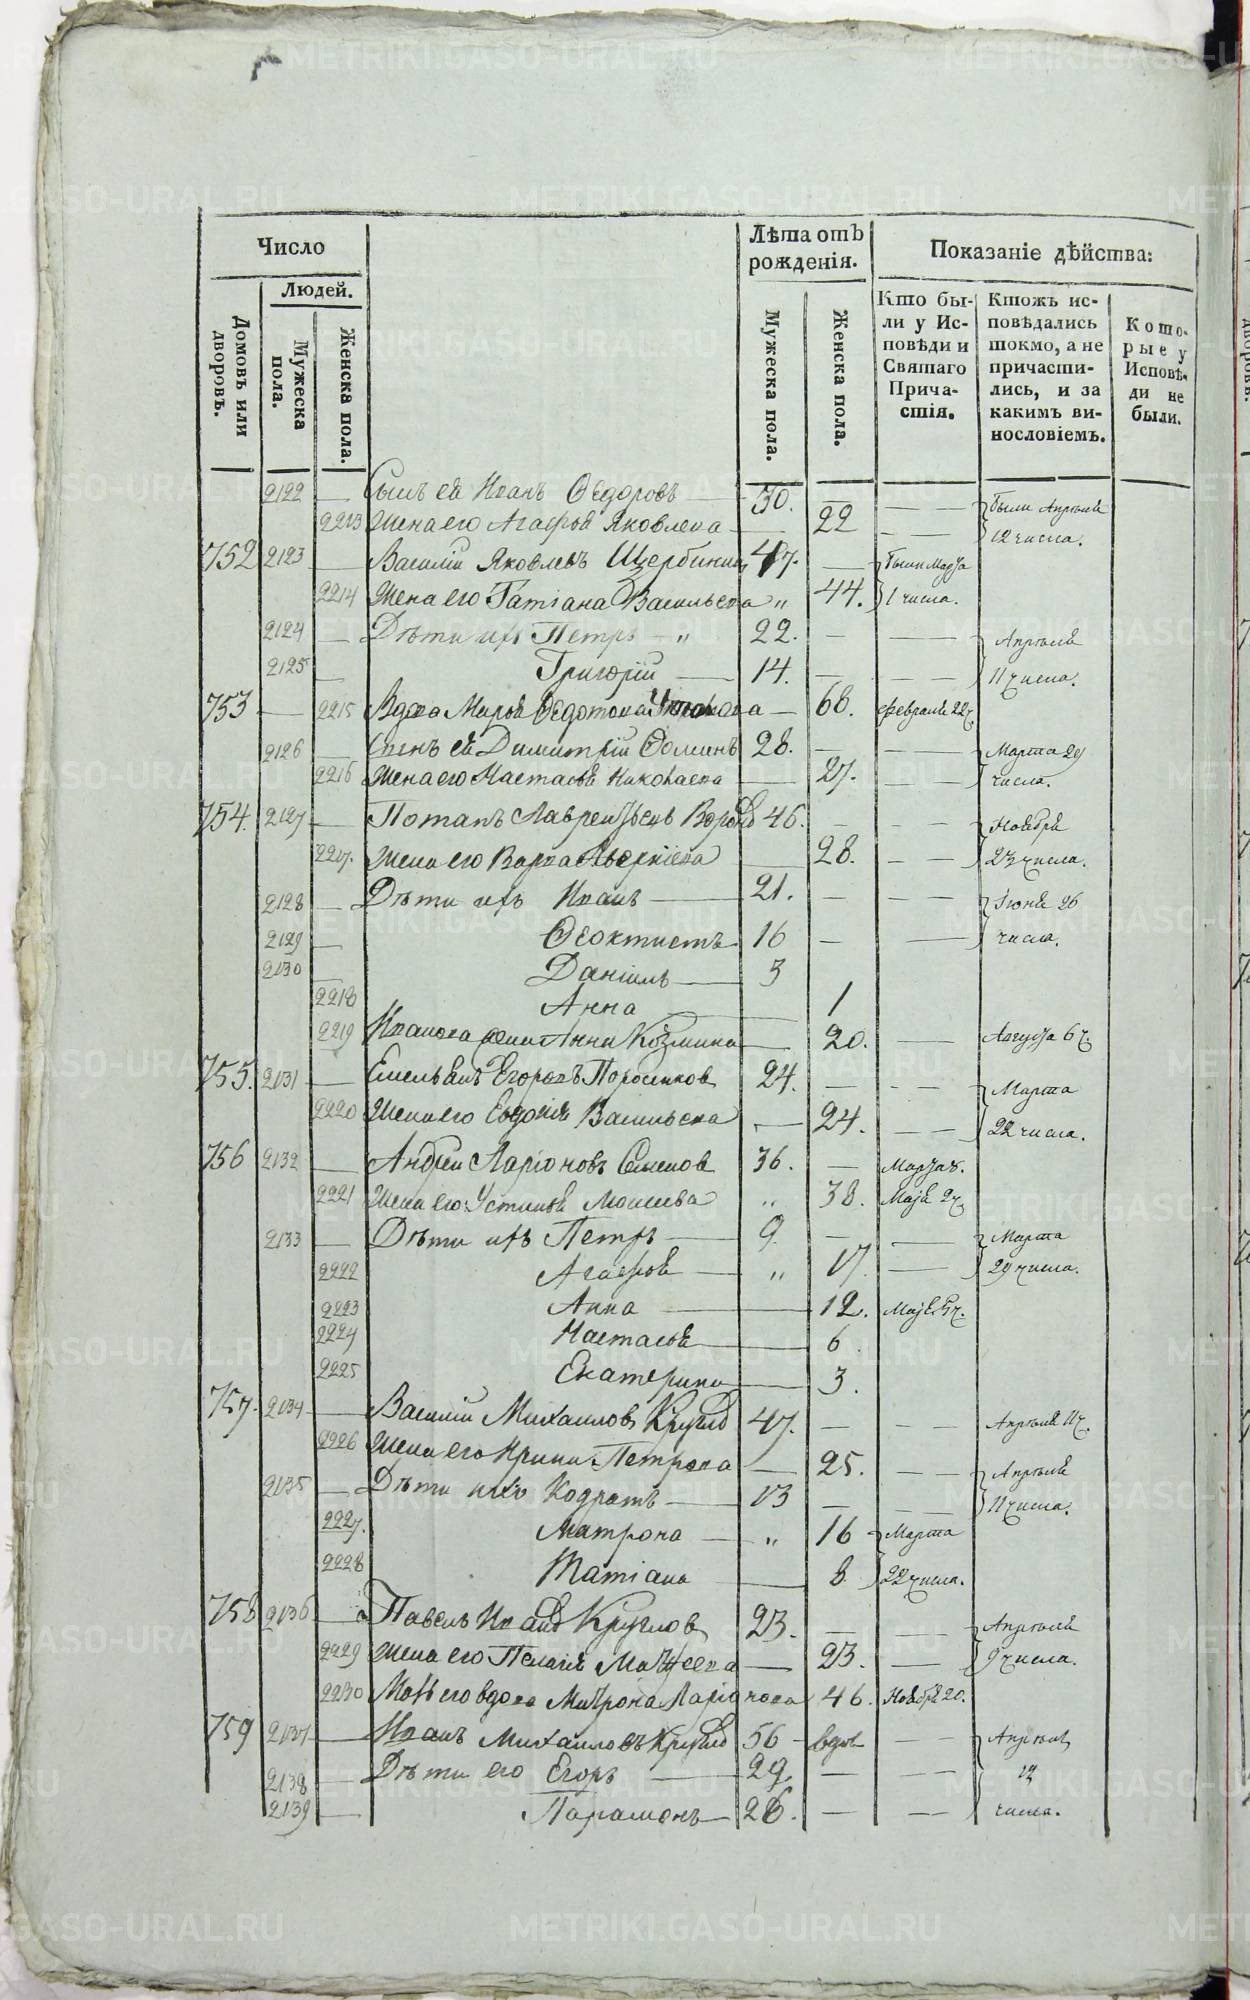 Число
Людей.
Домовъ или дворовъ.
Мужеска пола.
Женска пола.
Лѣта отъ рожденія.
Мужеска пола.
Женска пола.
Показаніе дѣйства:
Кто бы-
ли у Ис-
повѣди и
Святаго
Прича-
стія.
Ктожъ ис-
повѣдались
токмо, а не
причасти-
лись, и за
какимъ ви-
нословіемъ.
Кото-
рые у
Исповѣ-
ди не
были.
2122 — Сынъ ей Иванъ Ѳедоровъ — 30. — — Были Апрѣля
2213 Жена его Агафья Яковлева — 22 — — 12 числа.
752 2123 — Василій Яковлевъ Щербининъ 47. — Были Марта
2214 Жена его Татіана Васильева „ 44. 1 числа.
2124 — Дѣти ихъ Петръ „ 22. — — Апрѣля
2125 — Григорій — 14. — — 11 числа.
753 — 2215 Вдова Марья Ѳедотова — 68. февраля 22ч.
2126 — Сынъ ей Димитрій Ѳоминъ 28. — — Марта 29
2216 Жена его Настасья Николаева — 27. — — числа.
754. 2127 — Потапъ Лаврентьевъ 46. — — Ноября
2217. Жена его Варвара — 28. — — 23 числа.
2128 — Дѣти ихъ Иванъ — 21. — — Іюня 26
2129 — Ѳеоктистъ 16 — — числа.
2130 — Даніилъ — 3
2218 Анна — 1
2219 Иванова жена Анна Козмина — 20. — Августа 6 ч.
755. 2131 — Емельянъ Егоровъ Поросенковъ 24. — — Марта
2220 Жена его Евдокія Васильева — 24. — — 22 числа.
756 2132 — Андрей Ларіоновъ 36. — Марта 8.
2221 Жена его Устинья Моисеева „ 38. Маія 2ч
2133 — Дѣти ихъ Петръ — 9. — — Марта
2222 Агафья — „ 17. — 29 числа.
2223 Анна — 12. Маія 5ч.
2224 Настасья — 6.
2225 Екатерина — 3.
757. 2134 — Василій Михаиловъ Кругловъ 47. — — Апрѣля 11ч.
2226 Жена его Ирина Петрова — 25. — — Апрѣля
2135 — Дѣти ихъ Кодратъ — 13 — — 11 числа.
2227. Матрона — „ 16 Марта
2228 Татіана — 8 22 числа.
758 2136 — Павелъ Ивановъ Кругловъ 23. — — Апрѣля
2229 Жена его Пелагія Матѳеева — 23. — 9 числа.
2230 Мать его вдова Матрона Ларіонова 46. Ноября 20.
759 2137 — Иванъ Михаиловъ Кругловъ 56 — вдов — — Апрѣля
2138 — Дѣти его Егоръ — 29. — — 12
2139 — Парамонъ — 26. — — числа.
METRIKI.GASO-URAL.RU